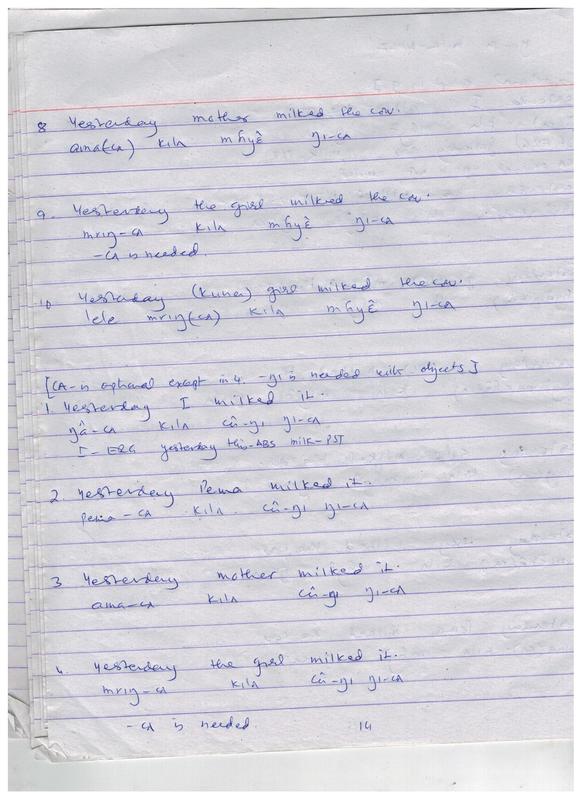 8 Yesterday mother milked the cow.
ama(cʌ) kilʌ mɦyɛ̂ ŋi-cʌ
9. Yesterday the girl milked the cow.
mriŋ-cʌ kilʌ mɦyɛ̂ ŋi-cʌ
-cʌ is needed.
10 Yesterday (Kunen) girl milked the cow.
lele mriŋ(cʌ) kilʌ mɦyɛ̂ ŋi-cʌ
[cʌ- is optional except in 4. -ŋi is needed with objects]
1. Yesterday I milked it.
ŋâ-cʌ kilʌ cû-ŋi ŋi-cʌ
I-ERG yesterday this-ABS milk-PST
2 Yesterday Pema milked it.
Pema-cʌ kilʌ cû-ŋi ŋi-cʌ
3 Yesterday mother milked it.
ama-cʌ kilʌ cû-ŋi ŋi-cʌ
4. Yesterday the girl milked it.
mriŋ-cʌ kilʌ cû-ŋi ŋi-cʌ
-cʌ is needed. 14